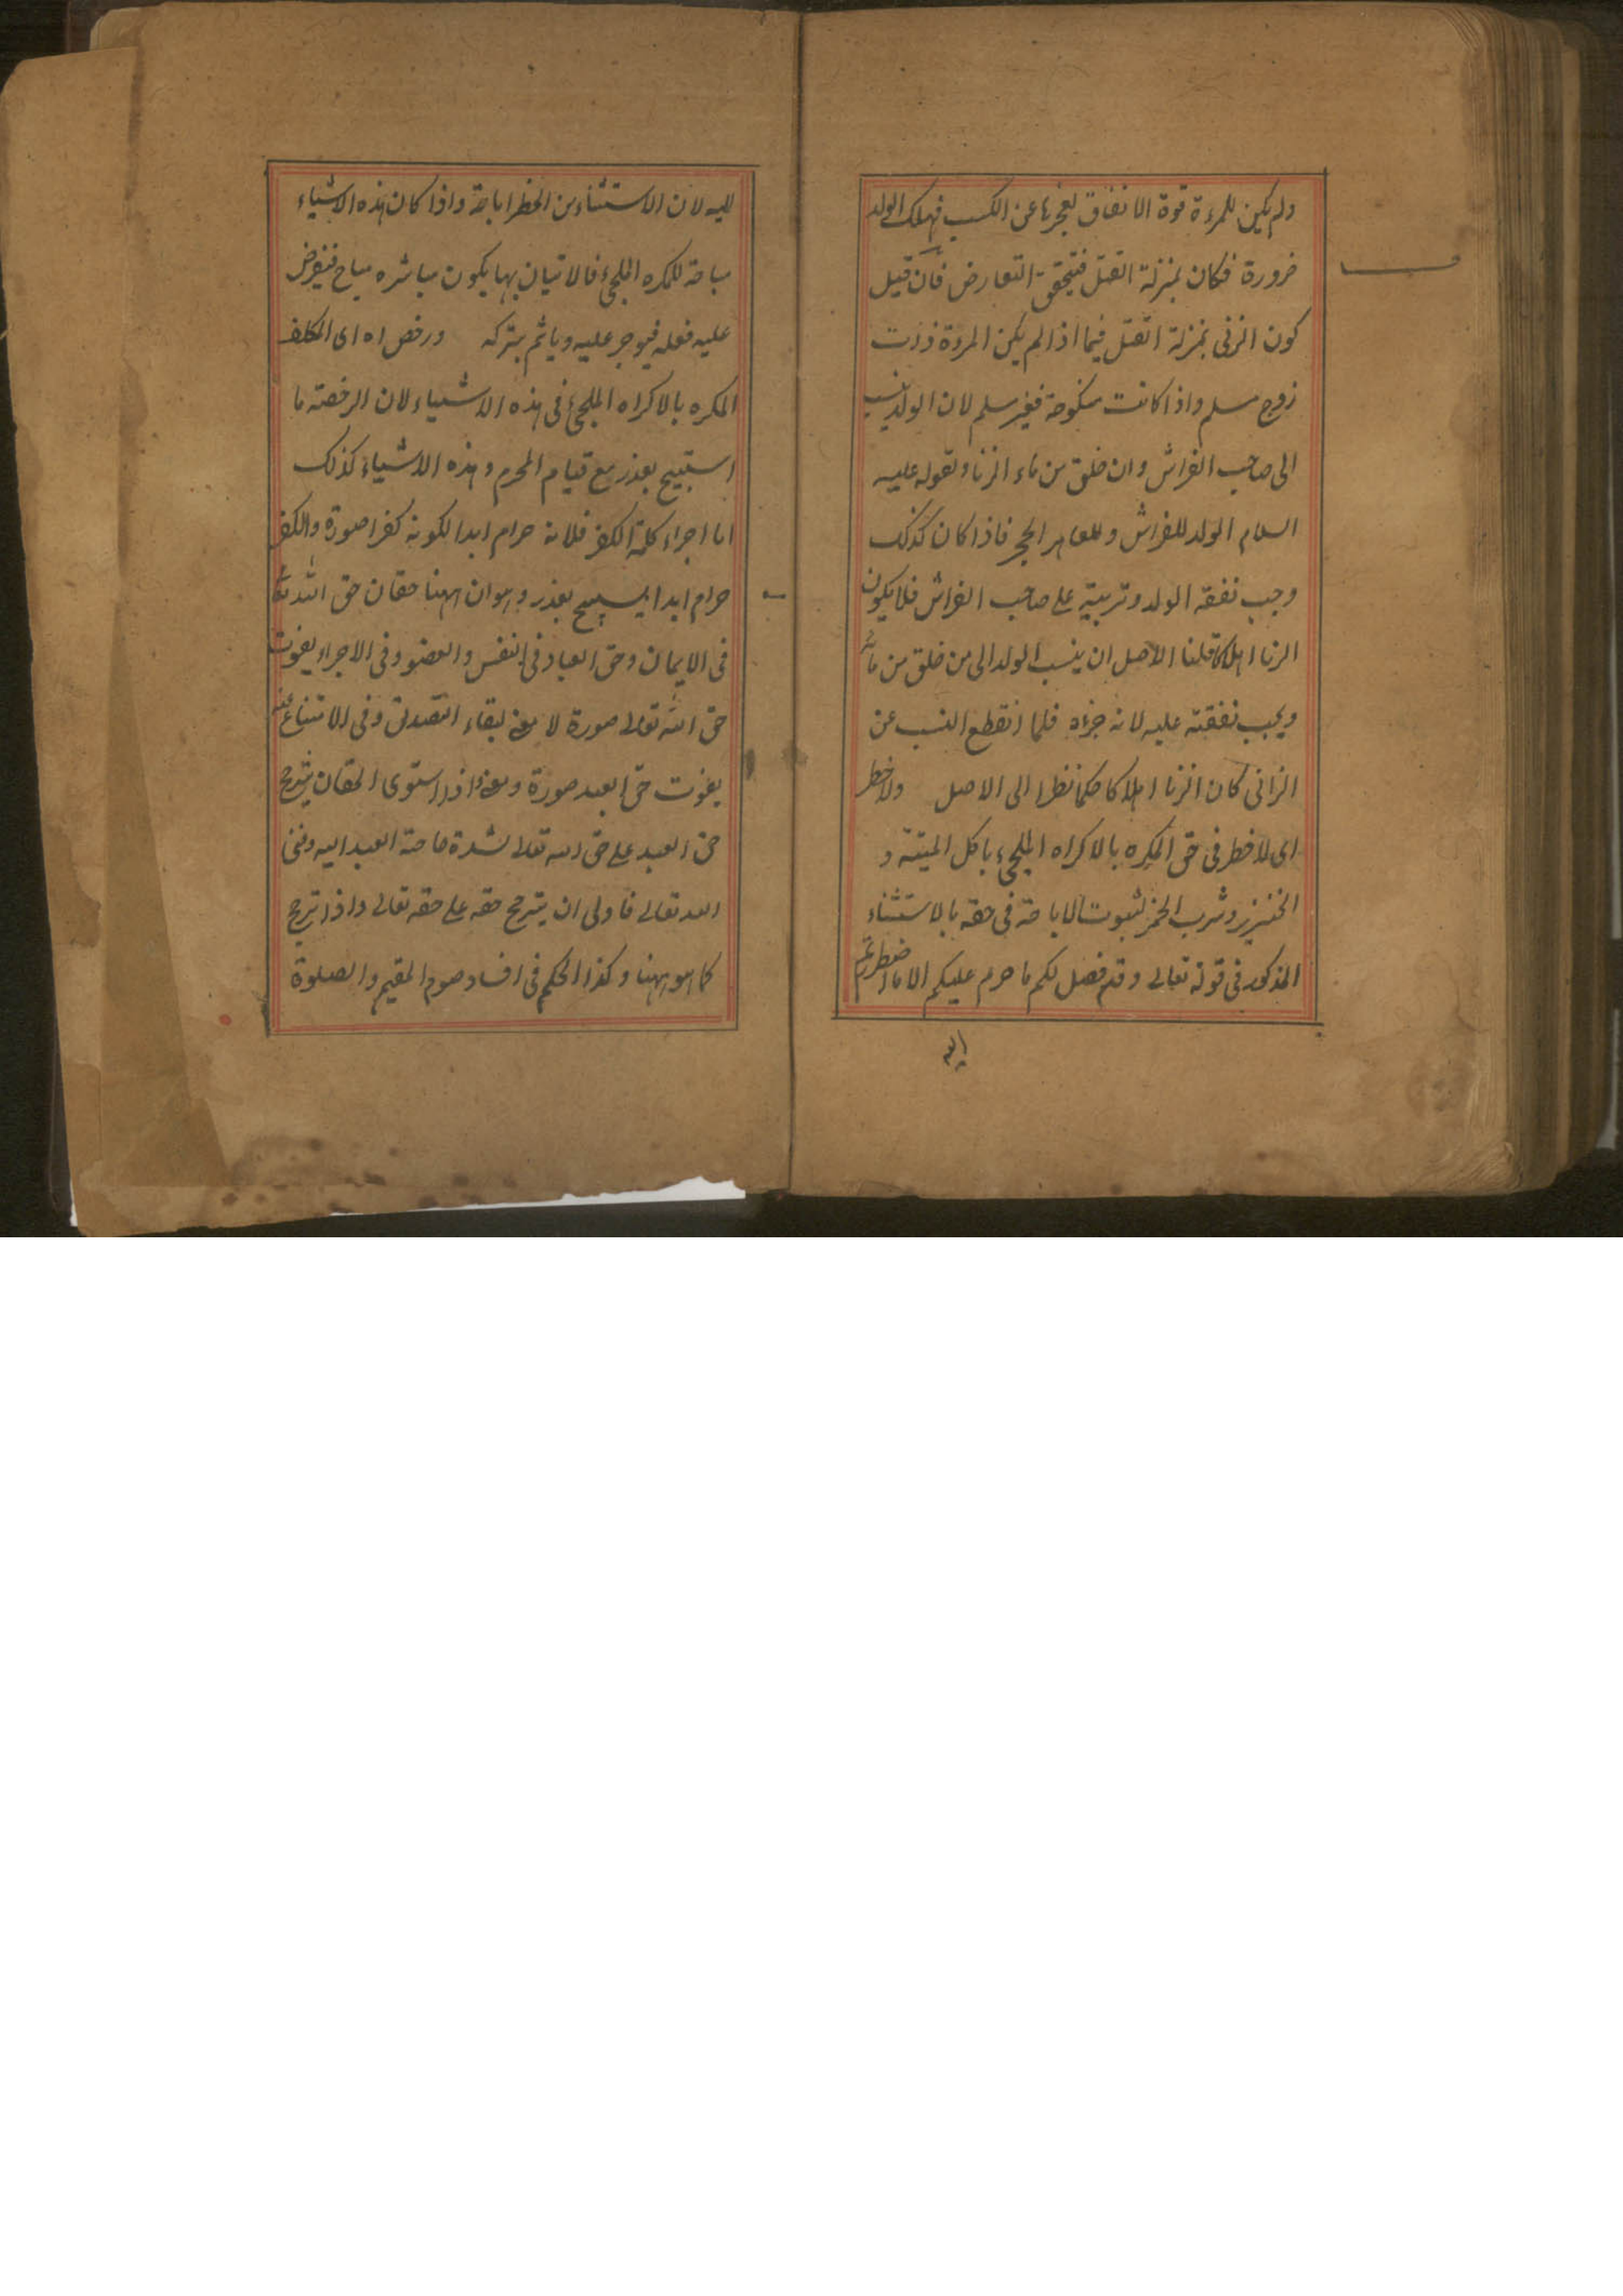 ولم يكن للمرءة قوة الانفاق لعجزها عن الكسب فهلك الولد
ضرورة فكان بمنزلة القتل فيتحقق التعارض فان قيل
كون الزنى بمنزلة القتل فيما اذا لم يكن المرءة ذات
زوج مسلم واذا كانت منكوحة فغير مسلم لان الولد ينسب
الى صاحب الفراش وان خلق من ماء الزنا ولقوله عليه
السلام الولد للفراش وللعاهر الحجر فاذا كان كذلك
وجب نفقه الولد وتربيته على صاحب الفراش فلا يكون
الزنا اهلاكا قلنا الاصل ان ينسب الولد الى من خلق من مائه
ويجب نفقته عليه لانه جزءه فلما انقطع النسب عن
الزانى كان الزنا اهلاكا حكما نظرا الى الاصل ولا خطر
اى لا خطر فى حق المكره بالاكراه الملجئ باكل الميتة و
الخنزير وشرب الخمر لثبوت الاباحة فى حقه بالاستثناء
المذكور فى قوله تعالى وقد فصل لكم ما حرم عليكم الا ما اضطررتم
اليه
لليه لان الاستثناء من الحظر اباحة واذا كان هذه الاشياء
مباحة للمكره الملجئ فالاتيان بها يكون مباشره مباح فيفرض
عليه فعله فيوجر عليه وياثم بتركه ورخص اه اى المكلف
المكره بالاكراه الملجئ فى هذه الاشياء لان الرخصة ما
استبيح بعذر مع قيام المحرم وهذه الاشياء كذلك
اما اجراء كلمة الكفر فلانه حرام ابدا لكونه كفرا صورة والكفر
حرام ابدا يستبيح بعذر وهو ان ههنا حقان حق الله تعا
فى الايمان وحق العباد فى النفس والعضو وفى الاجراء يفوت
حق الله تعالى صورة لا معنى لبقاء التصديق وفى الامتناع عنه
يفوت حق العبد صورة ومعنى واذا استوى الحقان يترجح
حق العبد على حق الله تعالى لشدة حاجة العبد اليه وغنى
الله تعالى فاولى ان يترجح حقه على حقه تعالى واذا ترجح
كما هو ههنا وكذا الحكم فى افساد صوم المقيم والصلوة